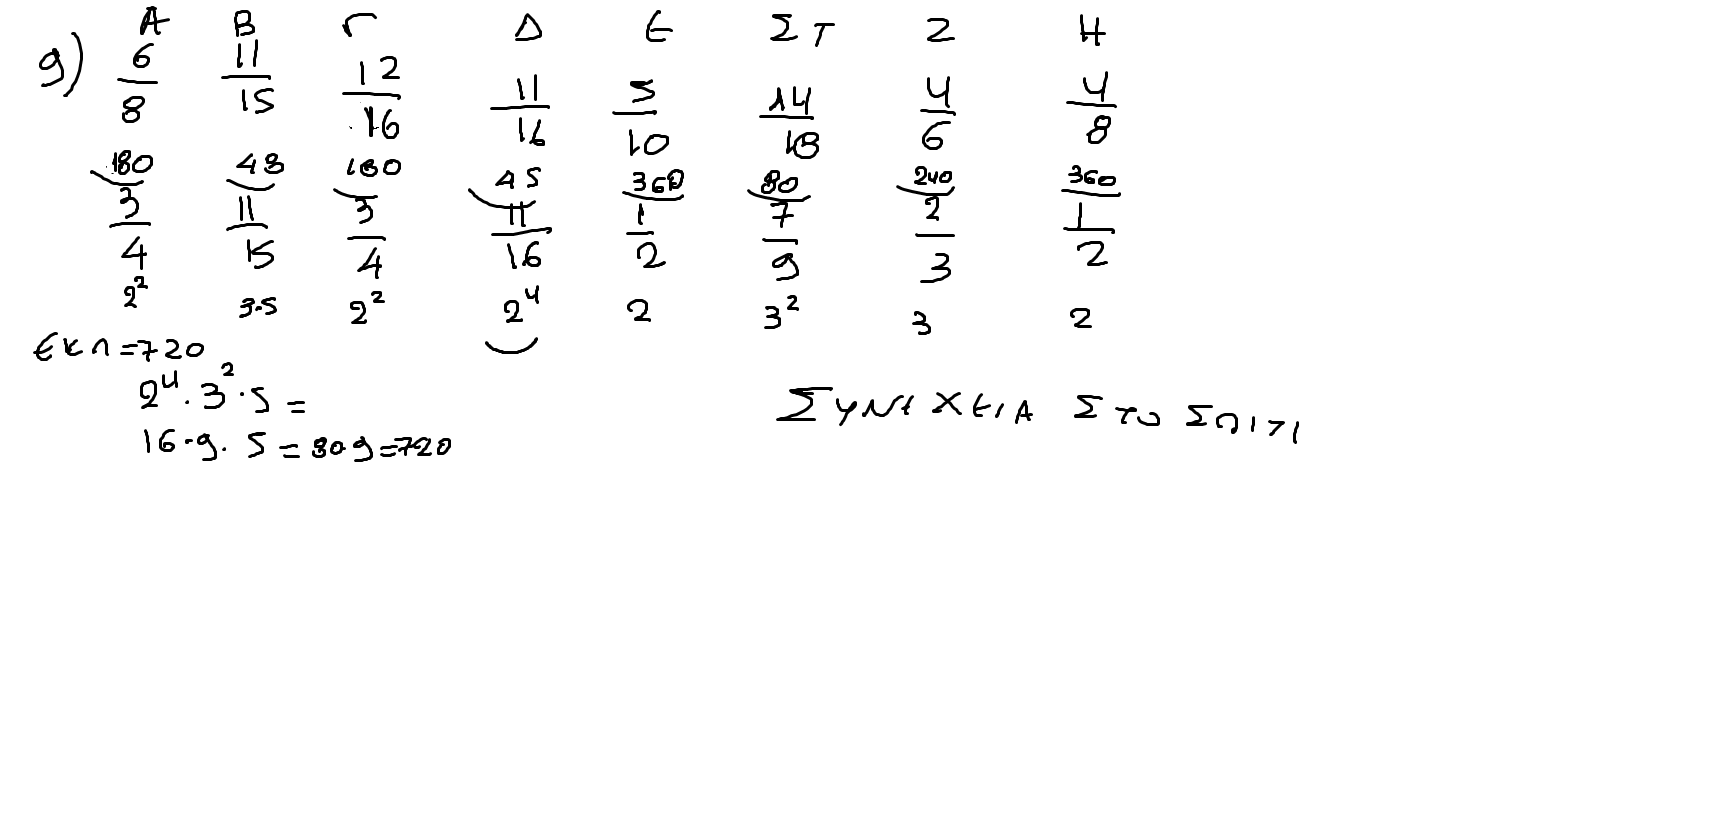 Α Β Γ Δ Ε ΣΤ Ζ Η
9) 6/8 11/15 12/16 11/16 5/10 14/18 4/6 4/8
180 48 180 45 360 80 240 360
3/4 11/15 3/4 11/16 1/2 7/9 2/3 1/2
2² 3·5 2² 2⁴ 2 3² 3 2
ΕΚΠ=720
2⁴·3²·5=
16·9·5=80·9=720
ΣΥΝΕΧΕΙΑ ΣΤΟ ΣΠΙΤΙ